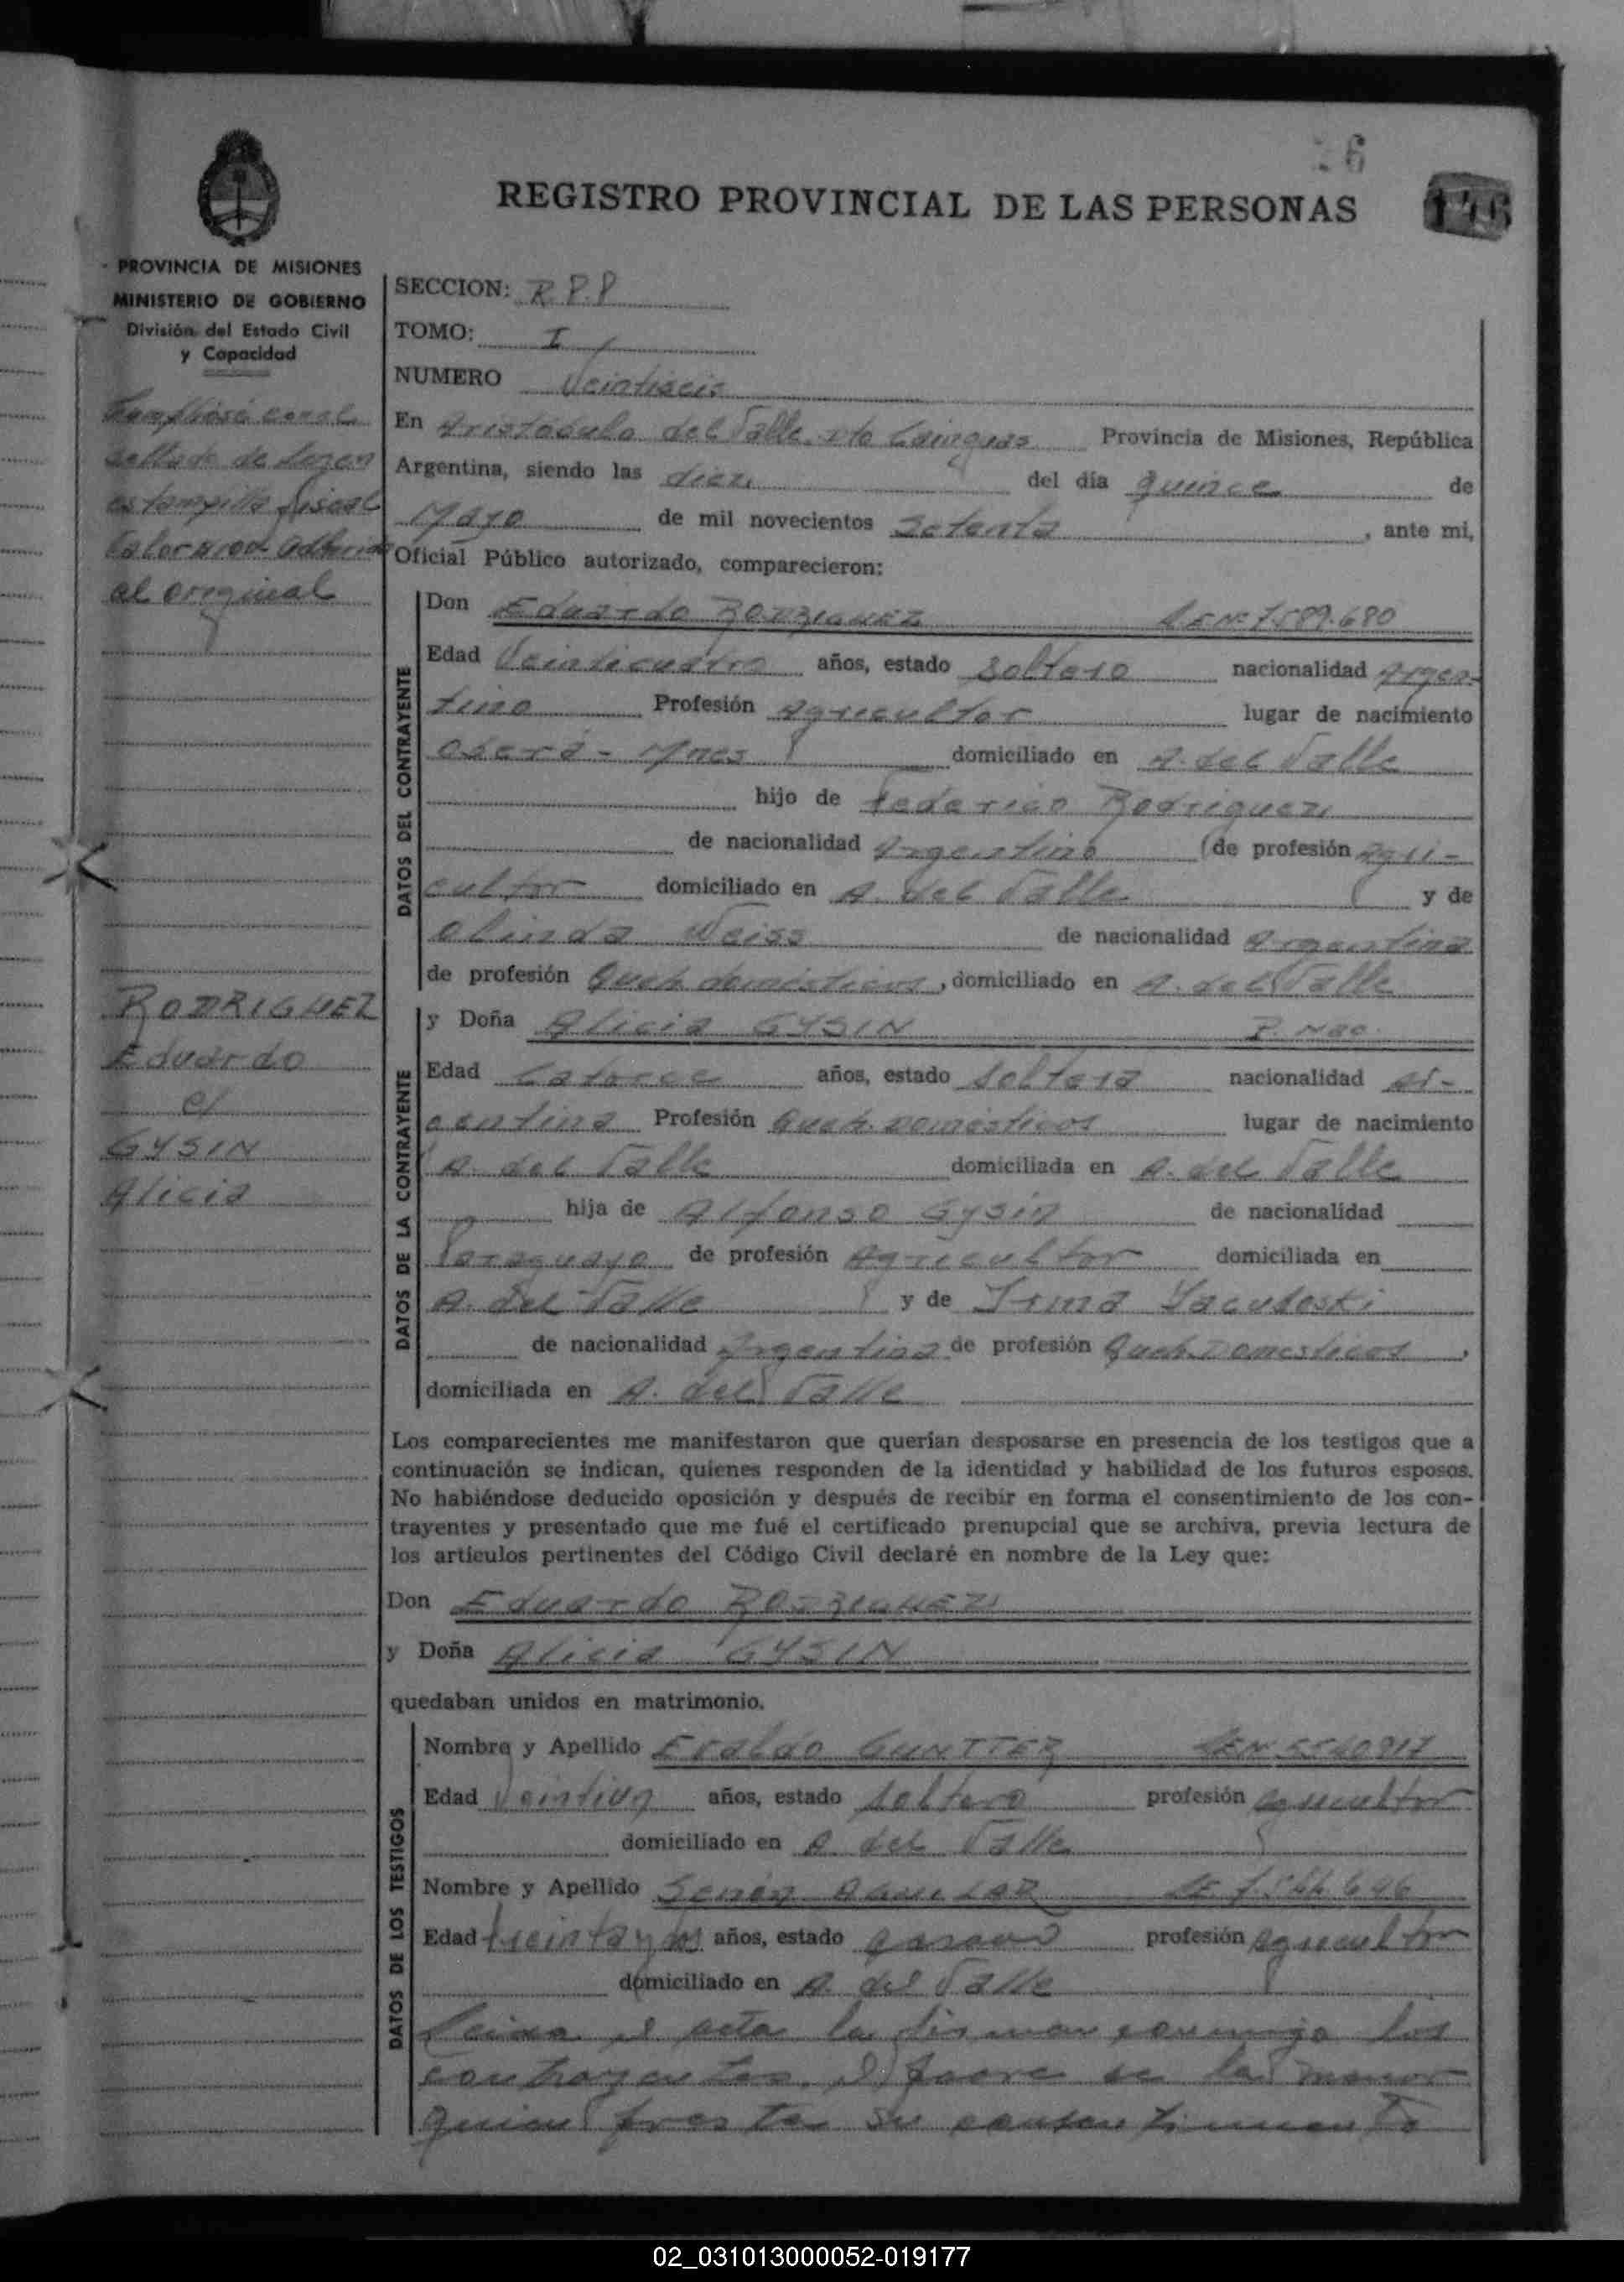 26
REGISTRO PROVINCIAL DE LAS PERSONAS
146
PROVINCIA DE MISIONES
MINISTERIO DE GOBIERNO
División del Estado Civil
y Capacidad
SECCION: R.P.P
TOMO: I
NUMERO Veintiseis
sellado de
estampilla fiscal
al original
RODRIGUEZ
Eduardo
c/
GYSIN
Alicia
En Aristobulo del Valle Dto Cainguas Provincia de Misiones, República
Argentina, siendo las diez del día quince de
Mayo de mil novecientos Setenta, ante mi,
Oficial Público autorizado, comparecieron:
DATOS DEL CONTRAYENTE
Don Eduardo RODRIGUEZ LE Nº 7.589.680
Edad Veinticuatro años, estado soltero nacionalidad Argen-
tino Profesión agricultor lugar de nacimiento
Oberá - Mnes domiciliado en A. del Valle
hijo de Federico Rodriguez
de nacionalidad Argentino de profesión agri-
cultor domiciliado en A. del Valle y de
Olinda Weiss de nacionalidad Argentina
de profesión Queh. domésticos, domiciliado en A. del Valle
DATOS DE LA CONTRAYENTE
y Doña Alicia GYSIN P. Nac.
Edad Catorce años, estado soltera nacionalidad Ar-
gentina Profesión Queh. Domésticos lugar de nacimiento
A. del Valle domiciliada en A. del Valle
hija de Alfonso Gysin de nacionalidad
Paraguayo de profesión Agricultor domiciliada en
A. del Valle y de Irma Yacuboski
de nacionalidad Argentina de profesión Queh. Domesticos,
domiciliada en A. del Valle
Los comparecientes me manifestaron que querían desposarse en presencia de los testigos que a
continuación se indican, quienes responden de la identidad y habilidad de los futuros esposos.
No habiéndose deducido oposición y después de recibir en forma el consentimiento de los con-
trayentes y presentado que me fué el certificado prenupcial que se archiva, previa lectura de
los artículos pertinentes del Código Civil declaré en nombre de la Ley que:
Don Eduardo RODRIGUEZ
y Doña Alicia GYSIN
quedaban unidos en matrimonio.
DATOS DE LOS TESTIGOS
Nombre y Apellido Evaldo GUNTTER
Edad Veintiun años, estado soltero profesión agricultor
domiciliado en A. del Valle
Nombre y Apellido Senén AGUILAR
Edad treinta y dos años, estado casado profesión agricultor
domiciliado en A. del Valle
Leida el acta la firman conmigo los
contrayentes, el padre de la menor
quien presta su consentimiento
02_031013000052-019177